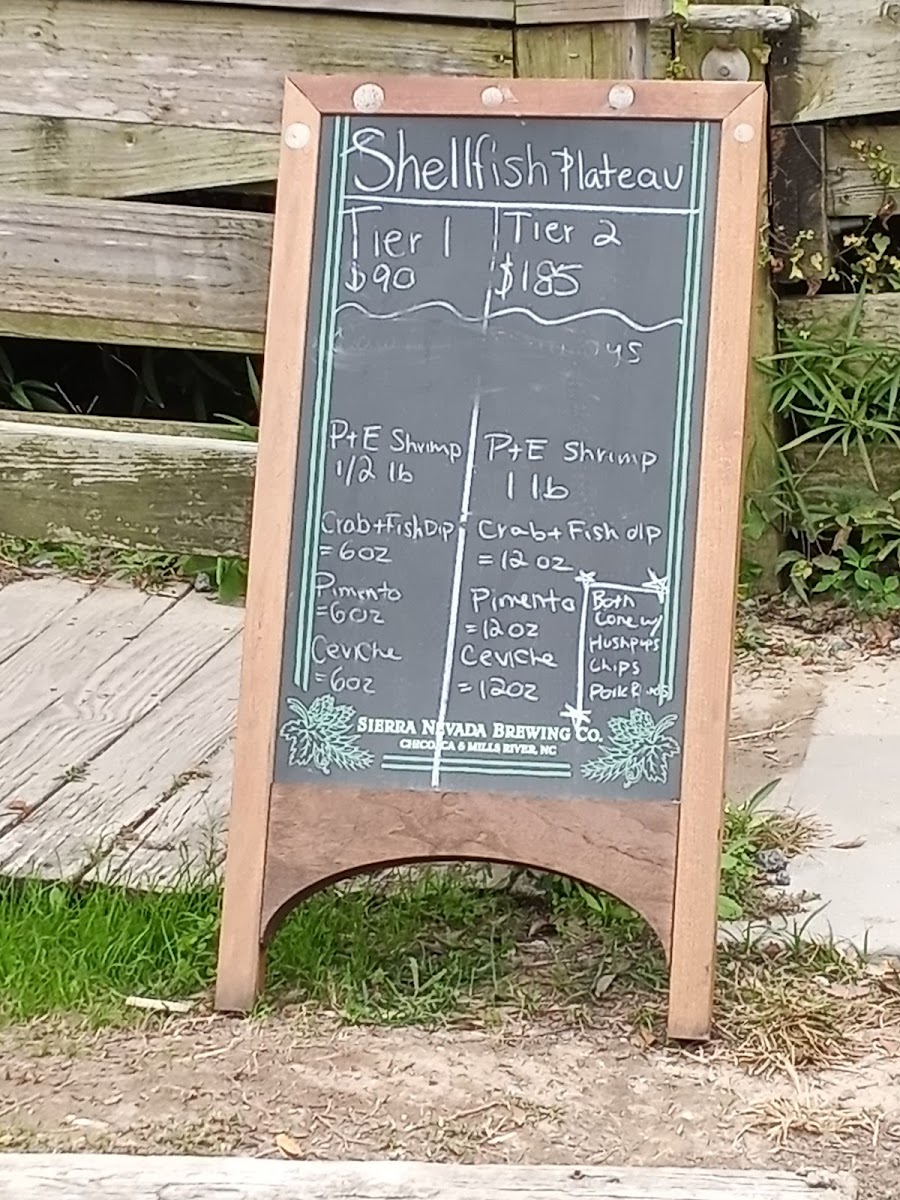 Shellfish Plateau
Tier 1
$90
Tier 2
$185
P+E Shrimp
1/2 lb
Crab+Fish Dip
= 6oz
Pimento
= 6oz
Ceviche
= 6oz
P+E Shrimp
1 lb
Crab + Fish dip
= 12 oz
Pimento
= 12 oz
Ceviche
= 12oz
Both
Come w/
Hushpups
Chips
Pork
SIERRA NEVADA BREWING CO.
CHICO, CA & MILLS RIVER, NC